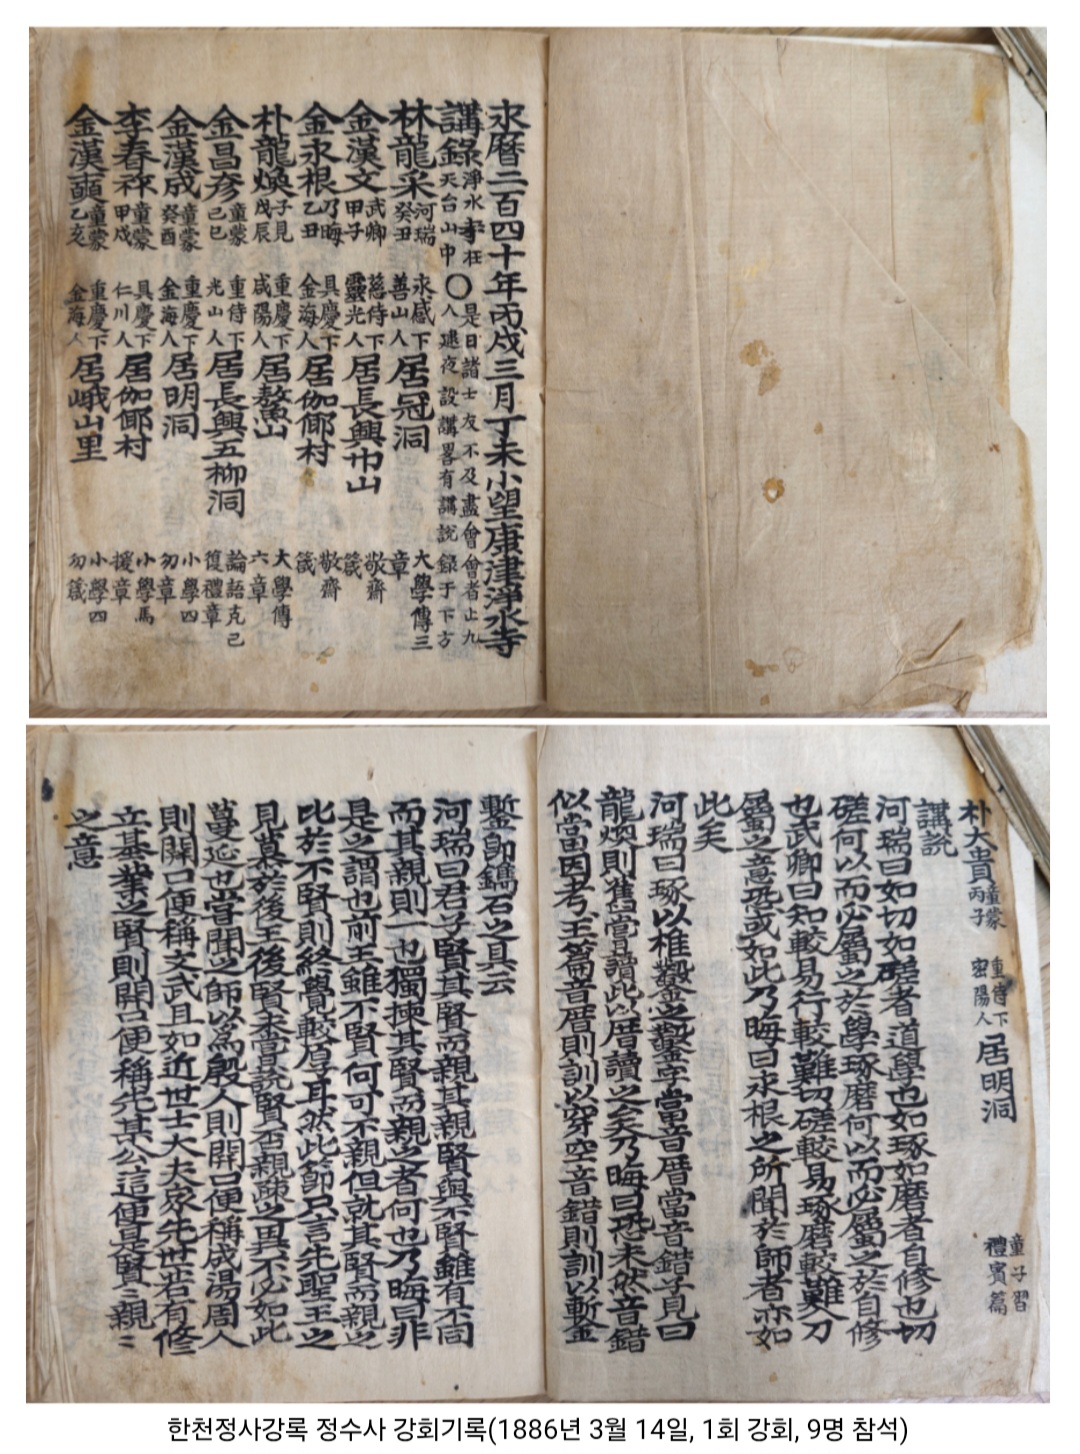 永曆二百四十年丙戌三月丁未小望康津淨水寺
講錄 淨水寺在天台山中 〇 是日諸士友不及盡會會者止九人遂夜設講畧有講說錄于下方
林龍采 河瑞癸丑 永感下善山人 居冠洞 大學傳三章
金漢文 武卿甲子 慈侍下靈光人 居長興巾山 敬齋箴
金永根 乃晦乙丑 具慶下金海人 居伽倻村 敬齋箴
朴龍煥 子見戊辰 重慶下咸陽人 居鰲山 大學傳六章
金昌彦 童蒙己巳 重侍下光山人 居長興五柳洞 論語克己復禮章
金漢成 童蒙癸酉 重慶下金海人 居明洞 小學四勿章
李春 童蒙甲戌 具慶下仁川人 居伽倻村 小學馬援章
金漢 童蒙乙亥 重慶下金海人 居峨山里 小學四勿箴
朴大貴 童蒙丙子 重侍下密陽人 居明洞 童子習禮賓篇
講說
河瑞曰如切如磋者道學也如琢如磨者自修也切
磋何以而必屬之於學琢磨何以而必屬之於自修
也武卿曰知較易行較難切磋較易琢磨較難分
屬之意恐或如此乃晦曰永根之所聞於師者亦如
此矣
河瑞曰琢以椎鑿之鑿字當音厝當音錯子見曰
龍煥則舊嘗讀此以厝讀之矣乃晦曰恐未然音錯
似當因考玉篇音厝則訓以穿空音錯則訓以鏨金
鏨卽鐫石之具云
河瑞曰君子賢其賢而親其親賢與不賢雖有不同
而其親則一也獨揀其賢而親之者何也乃晦曰非
是之謂也前王雖不賢何可不親但就其賢而親之
比於不賢則終覺較厚耳然此節只言先聖王之
見慕於後王後賢未嘗說賢否親疎之異不必如此
蔓延也嘗聞之師以爲殷人則開口便稱成湯周人
則開口便稱文武且如近世士大夫家先世若有修
立基業之賢則開口便稱先某公這便是賢〻親〻
之意
한천정사강록 정수사 강회기록(1886년 3월 14일, 1회 강회, 9명 참석)